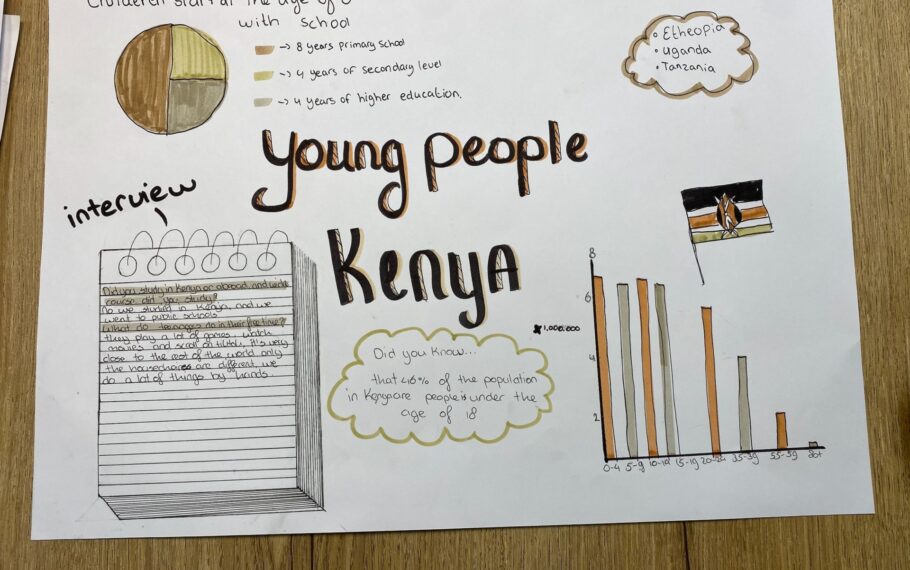 with school
-> 8 years primary school
-> 4 years of secondary level
-> 4 years of higher education.
• Etheopia
• Uganda
• Tanzania
Young people
Kenya
interview
Did you study in Kenya or abroad, and wich
course did you study?
No we studied in Kenya, and we
went to public schools
What do teenagers do in their free time?
they play a lot of games, watch
movies and scroll on tiktok, it's very
close to the rest of the world only
the housechores are different, we
do a lot of things by hands.
Did you know...
that 46% of the population
in Kenya are people is under the
age of 18
8
6
x 1,000,000
4
2
0-4 5-9 10-14 15-19 20-24 35-39 55-59 80+